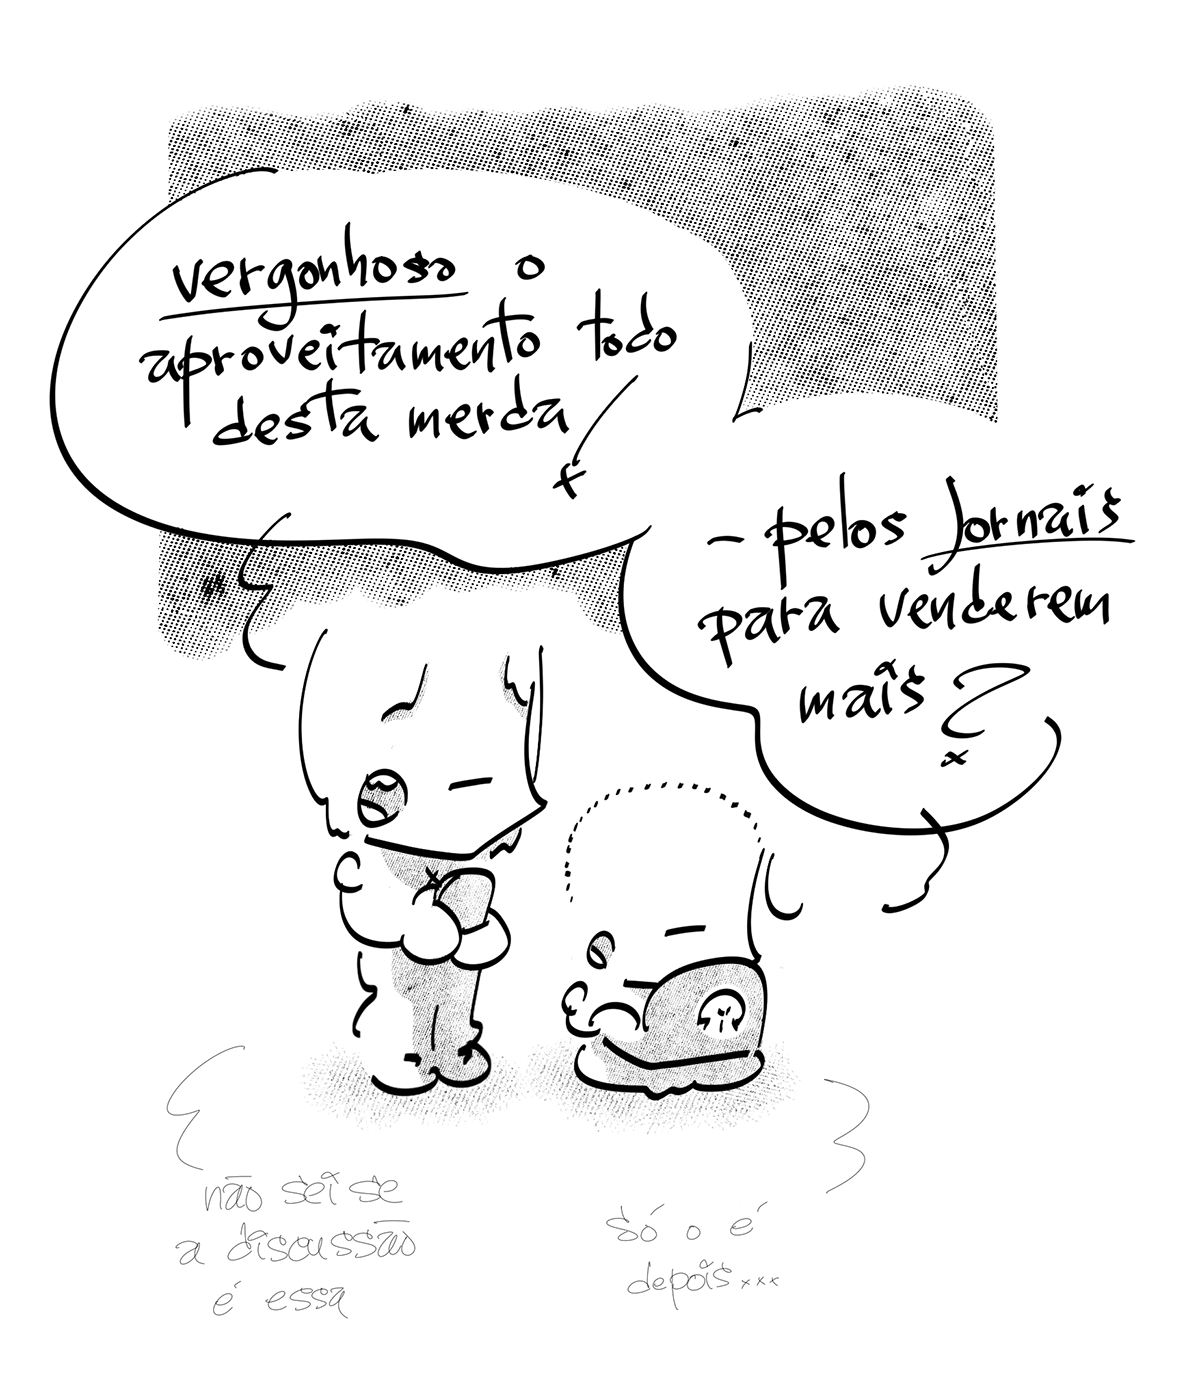 vergonhoso o
aproveitamento todo
desta merda
- pelos jornais
para venderem
mais?
não sei se
a discussão
é essa
só o é
depois...